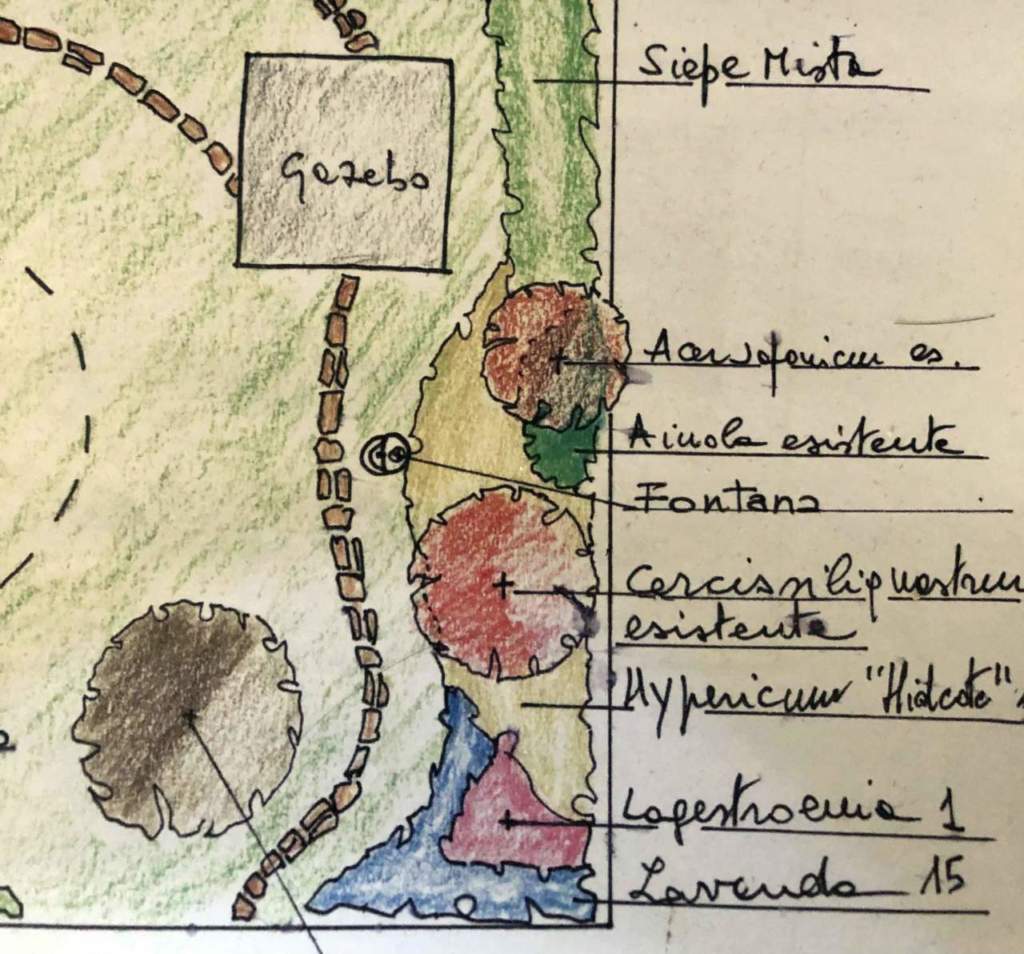 Siepe Mista
Gazebo
Acer Japonicum es.
Aiuola esistente
Fontana
Cercis siliquastrum
esistente
Hypericum "Hidcote"
Lagestroemia 1
Lavanda 15